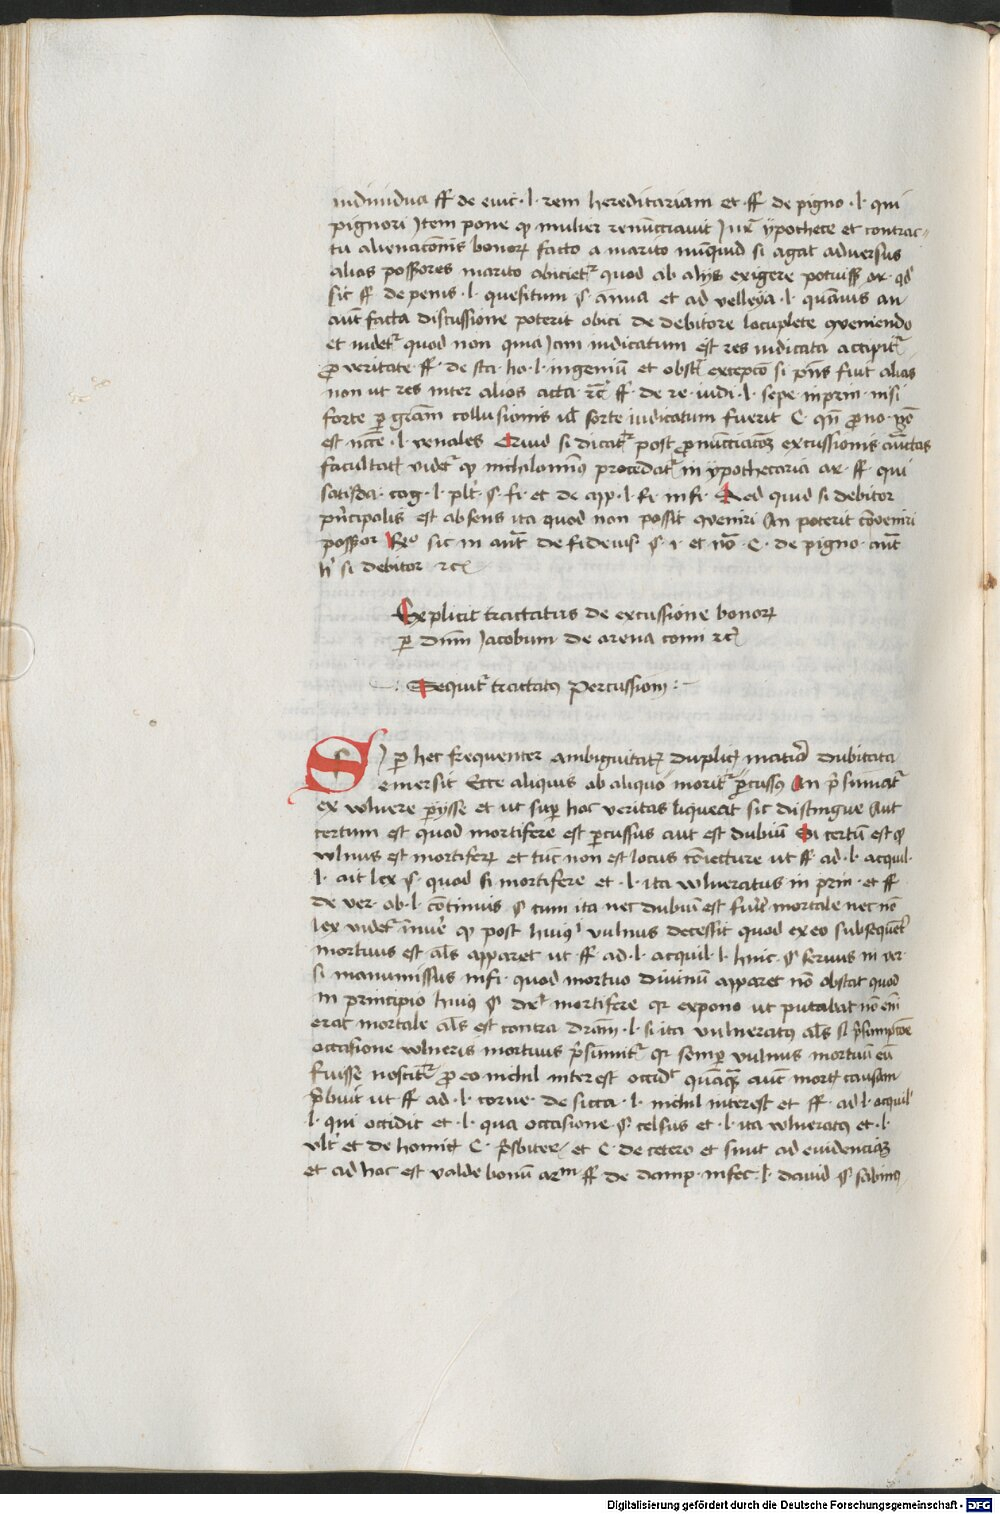 indiuidua ff de euic · l · rem hereditariam et · ff de pigno · l · qui
pignori Item pone qd mulier renuncciauit Juri ypothece et contrac-
tu alienacionis bonorum facto a marito nunquid si agat aduersus
alios possessores marito obicietur quod ab alijs exigere potuisset ar · qd
sic ff de penis · l · quesitum § anua et ad velleya · l · quamuis an
aut facta discussione poterit obici de debitore locuplete queniendo
et uidetur quod non quia Jam iudicatum est res iudicata accipitur
pro veritate ff · de sta · ho · l · ingenuum et obstat excepcio si prius fiut alias
non ut res inter alios acta etc ff de re · iudi · l · sepe in prin · nisi
forte per graciam collusionis uel sorte iudicatum fuerit C · qn pro no · 
est · l · venales Quid si dicatur post pronuncciacionem excussionis
facultatum videtur qd nichilominus procedatur in ypothecaria ar · ff · qui
satisda · cog · l · plt · § · fi · et de app · l · fi · in fi · Sed quid si debitor
principalis est absens ita quod non possit queniri An poterit conueniri
possessor Ro sic in aut de fideius · § · 1 · et no · C · de pigno · aut
h si debitor etc
Explicit tractatus de excussione bonorum
per dnm Jacobum de arena comi etc
Sequitur tractatus percussionum
Super hec frequenter ambiguitatem duplicem materia dubitata
emersit Ecce aliquis ab aliquo moritur percussus An presumatur
ex wlnere perysse et ut super hoc veritas liqueat sic distingue Aut
certum est quod mortifere est percussus aut est dubium Si certum est qd
wlnus est mortiferum et tunc non est locus coniecture ut ff · ad · l · acquil ·
l · ait lex § · quod si mortifere et · l · ita wlneratus in prin · et ff
de ver · ob · l · continuus § cum ita nec dubium est fuisse mortale nec non
lex videtur qd post huius vulnus decessit quod ex eo subsequenter
mortuus est als apparet ut ff · ad · l · acquil · l · huic · § seruus in ver ·
si manumissus infi · quod mortuo diuinum apparet non obstat quod
in principio huius § dicitur mortifere qr expono ut putabat non enim
erat mortale als est contra dram · l · si ita vulneratus als si presumptione
occasione wlneris mortuus presumitur qr semper vulnus mortuum eum
fuisse noscitur pro eo nichil interest occidat quamquam aut mortis causam
prebuit ut ff ad · l · corne · de sicca · l · nichil interest et ff · ad · l · acquil
l · qui occidit et · l · qua occasione · § celsus et · l · ita wlneratus et · l ·
vlt et de homit C · presbiter et C · de cetero et sunt ad euidenciam
et ad hoc est valde bonum arm ff de damp · infec · l · dauid § sabinus
Digitalisierung gefördert durch die Deutsche Forschungsgemeinschaft - DFG